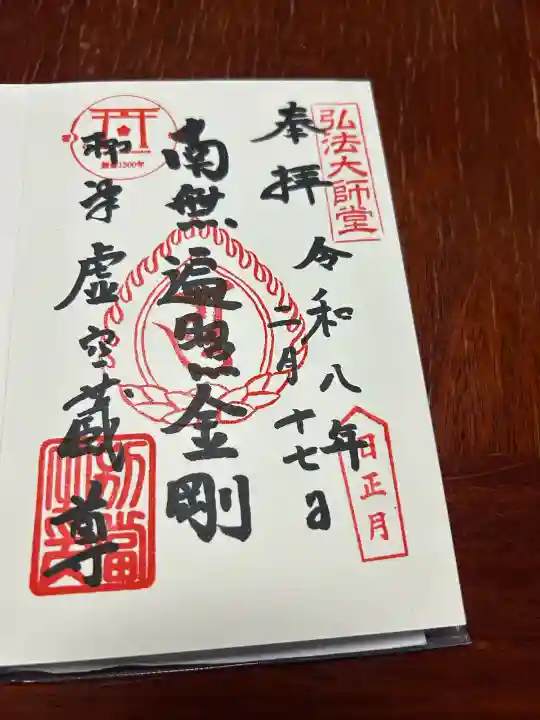 弘法大師堂
奉拝
令和八年
二月十七日
日正月
南無遍照金剛
柳津虚空蔵尊
別當